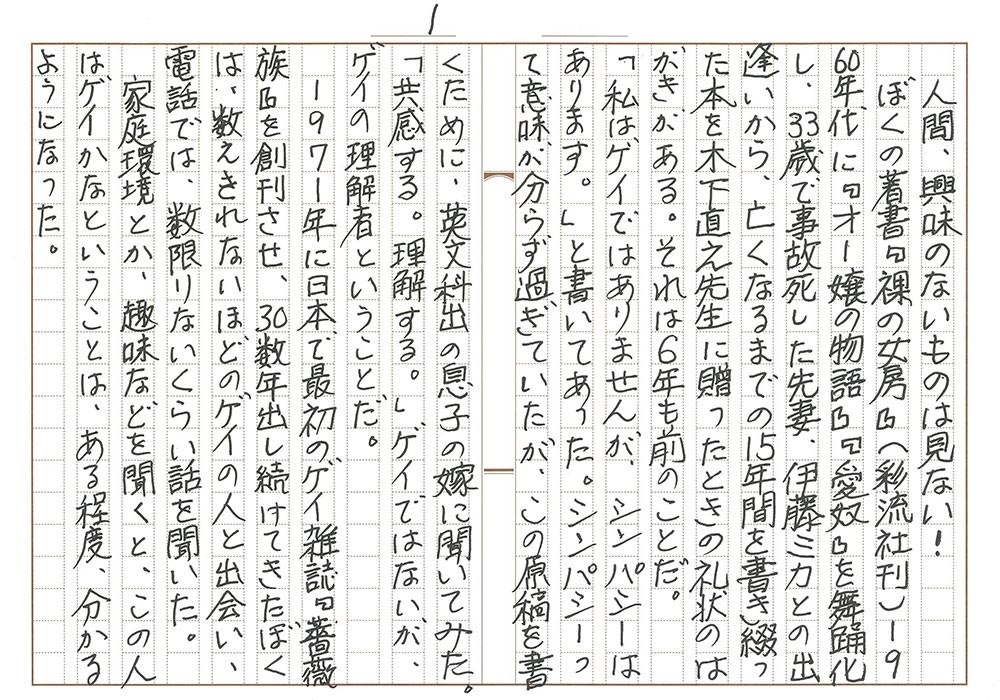 1
人間、興味のないものは見ない！
ぼくの著書『裸の女房』（彩流社刊）19
60年代に『オー嬢の物語』『愛奴』を舞踊化
し、33歳で事故死した先妻、伊藤ミカとの出
逢いから、亡くなるまでの15年間を書き綴っ
た本を木下直え先生に贈ったときの礼状のは
がきがある。それは6年も前のことだ。
「私は、ゲイではありませんが、シンパシーは
あります。」と書いてあった。シンパシーっ
て意味が分らず過ぎていたが、この原稿を書
くために、英文科出の息子の嫁に聞いてみた。
「共感する。理解する。」ゲイではないが、
ゲイの理解者ということだ。
1971年に日本で最初のゲイ雑誌『薔薇
族』を創刊させ、30数年出し続けてきたぼく
は、数えきれないほどのゲイの人と出会い、
電話では、数限りないくらい話を聞いた。
家庭環境とか、趣味などを聞くと、この人
はゲイかなということは、ある程度、分かる
ようになった。